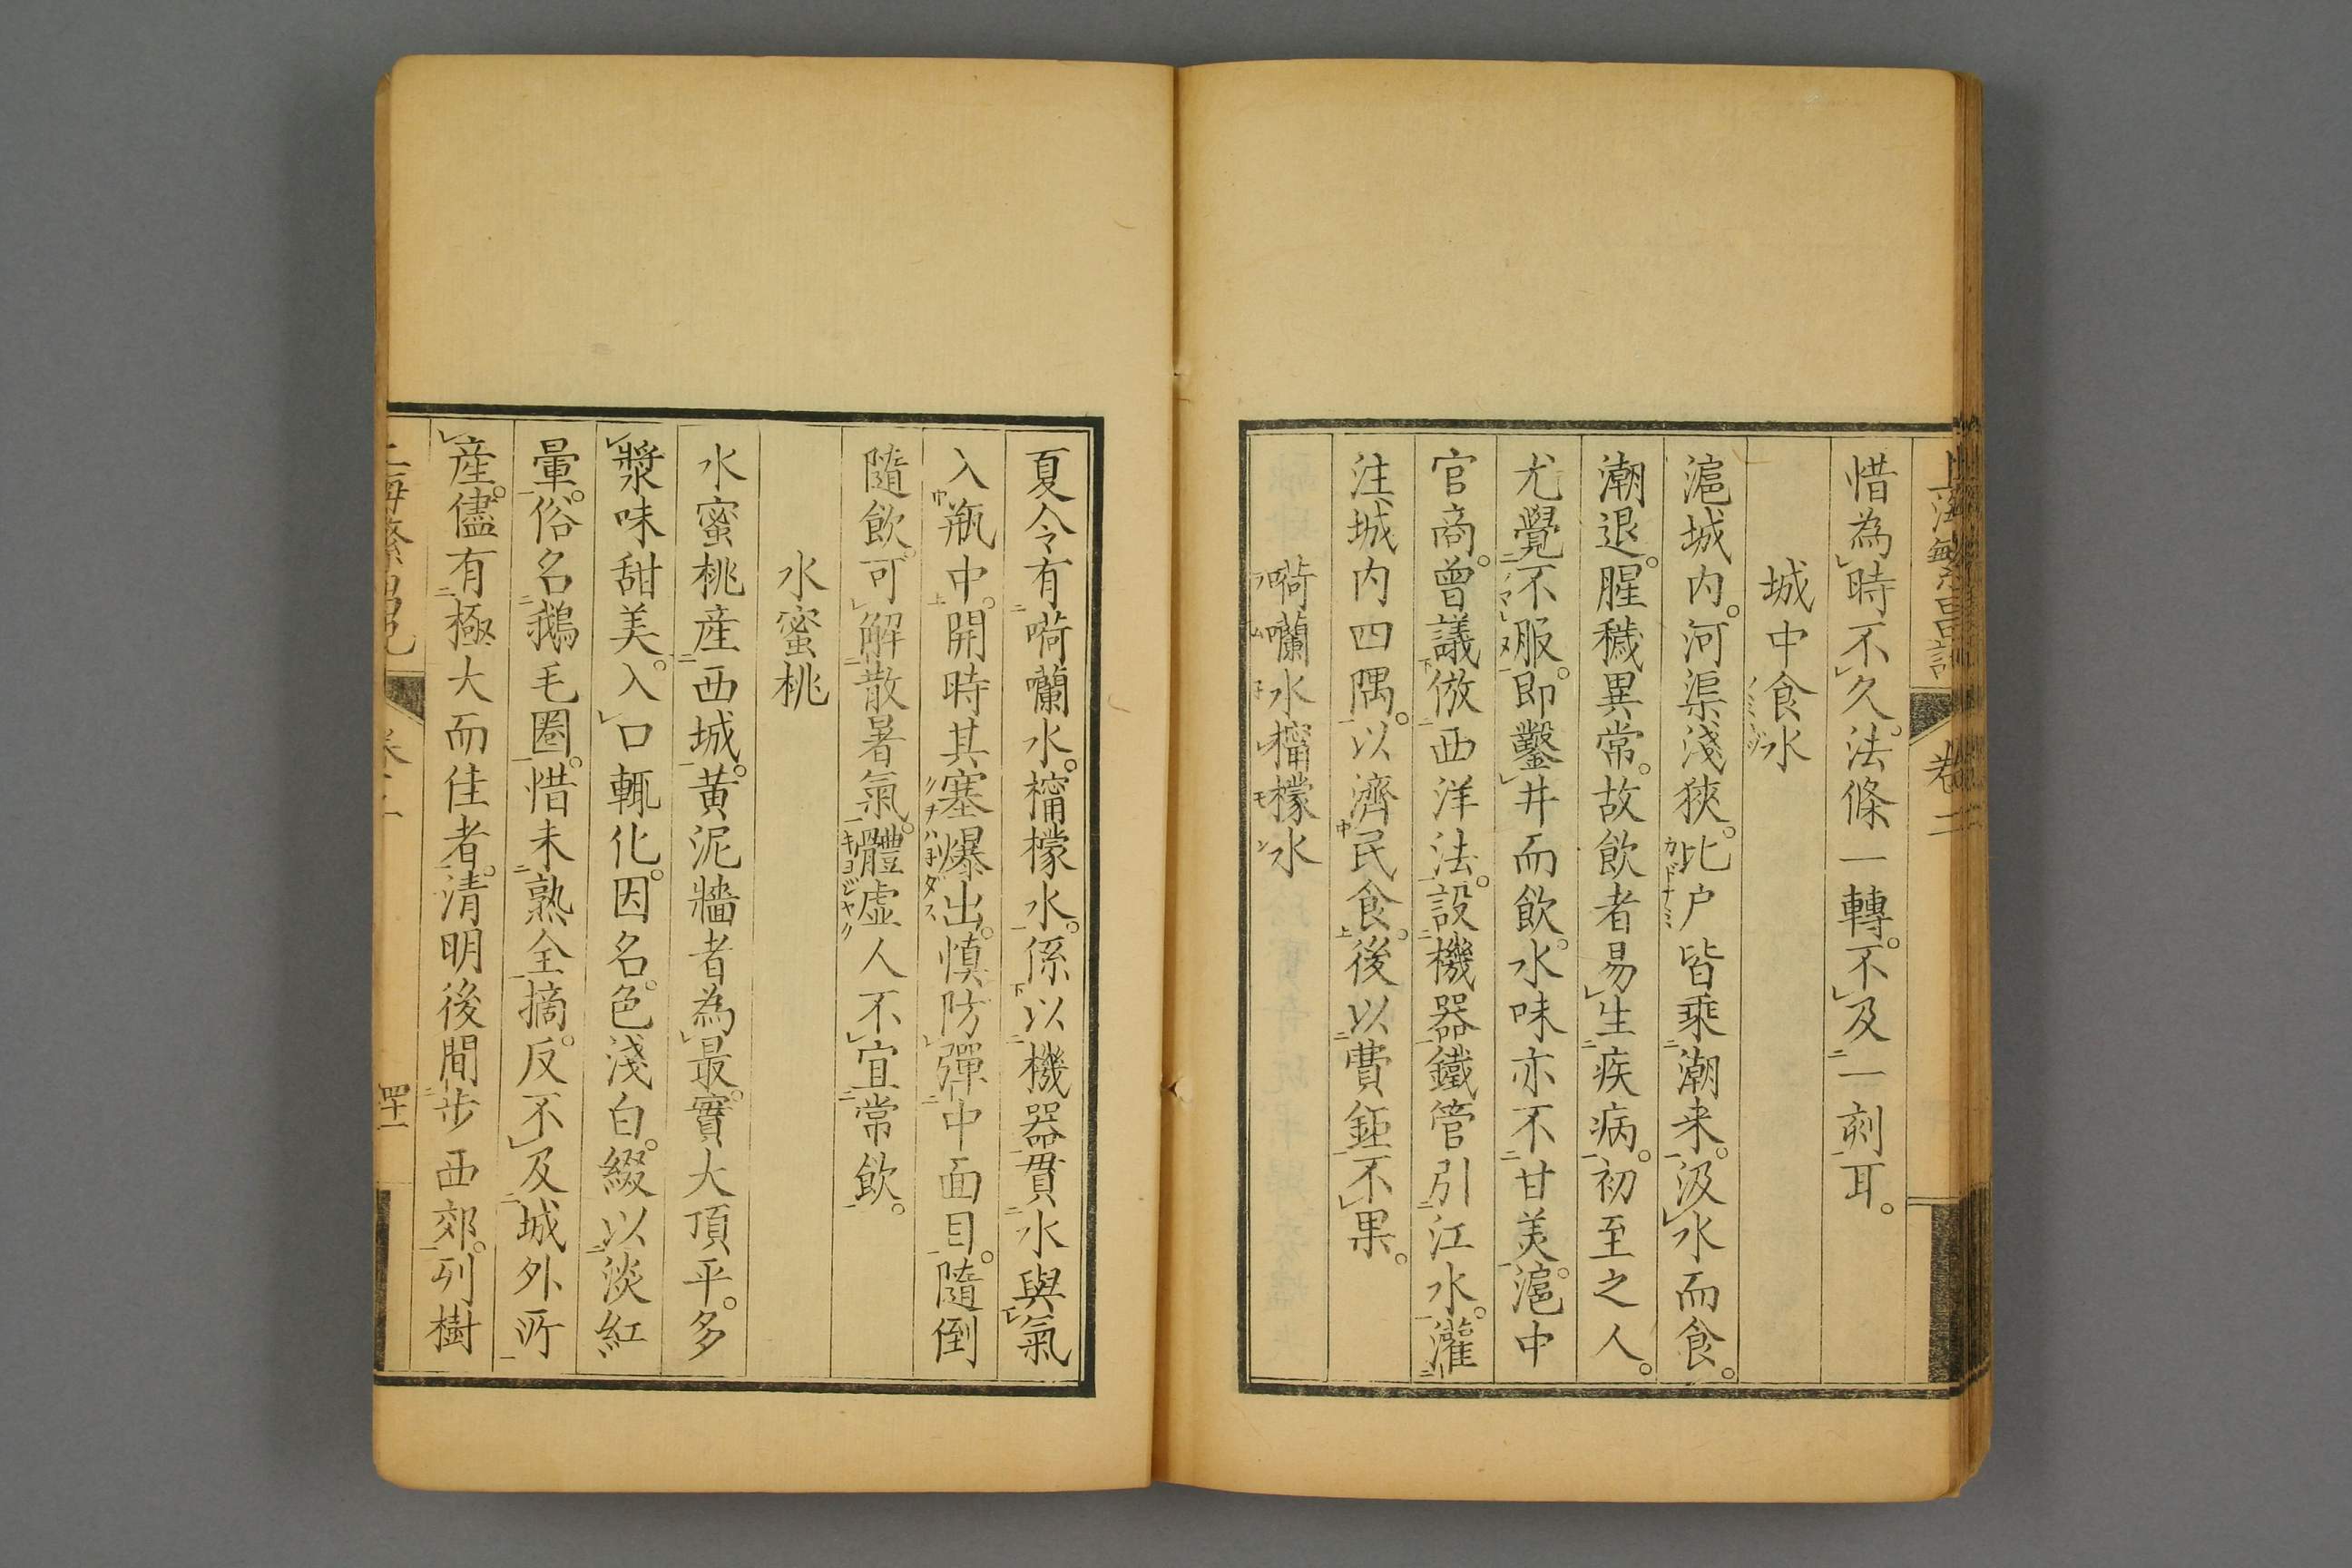 上海繁昌記 卷二
惜為時不久。法條一轉。不及一刻耳。
城中食水
滬城内。河渠淺狹。比户皆乘潮来。汲水而食。
潮退。腥穢異常。故飲者易生疾病。初至之人。
尤覺不服。即鑿井而飲。水味亦不甘美。滬中
官商。曾議倣西洋法。設機器鐵管引江水。灌
注城内四隅。以濟民食。後以費鉅不果。
嗬囒水檸檬水
夏令有嗬囒水。檸檬水。係以機器貫水與氣
入瓶中。開時其塞爆出。慎防彈中面目。隨倒
隨飲。可解散暑氣。體虚人不宜常飲。
水蜜桃
水蜜桃産西城。黄泥牆者為最。實大頂平。多
漿味甜美。入口輒化。因名。色淺白。綴以淡紅
暈。俗名鵝毛圈。惜未熟全摘。反不及城外所
産。儘有極大而佳者。清明後間步西郊。列樹
上海繁昌記 卷二 四十一